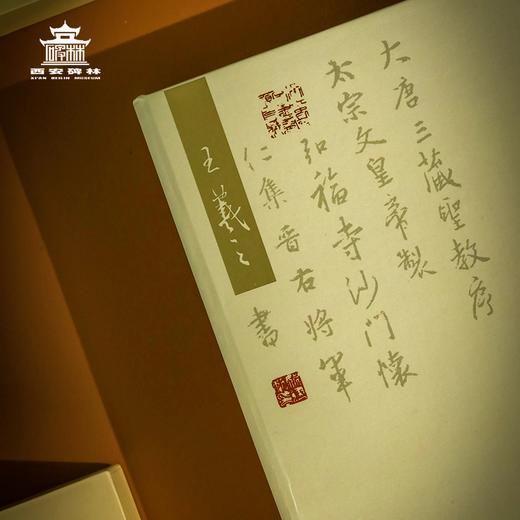 西安碑林
XI'AN BEILIN MUSEUM
大唐三藏聖教序
太宗文皇帝製
弘福寺沙門懷
仁集晉右將軍
王羲之
書